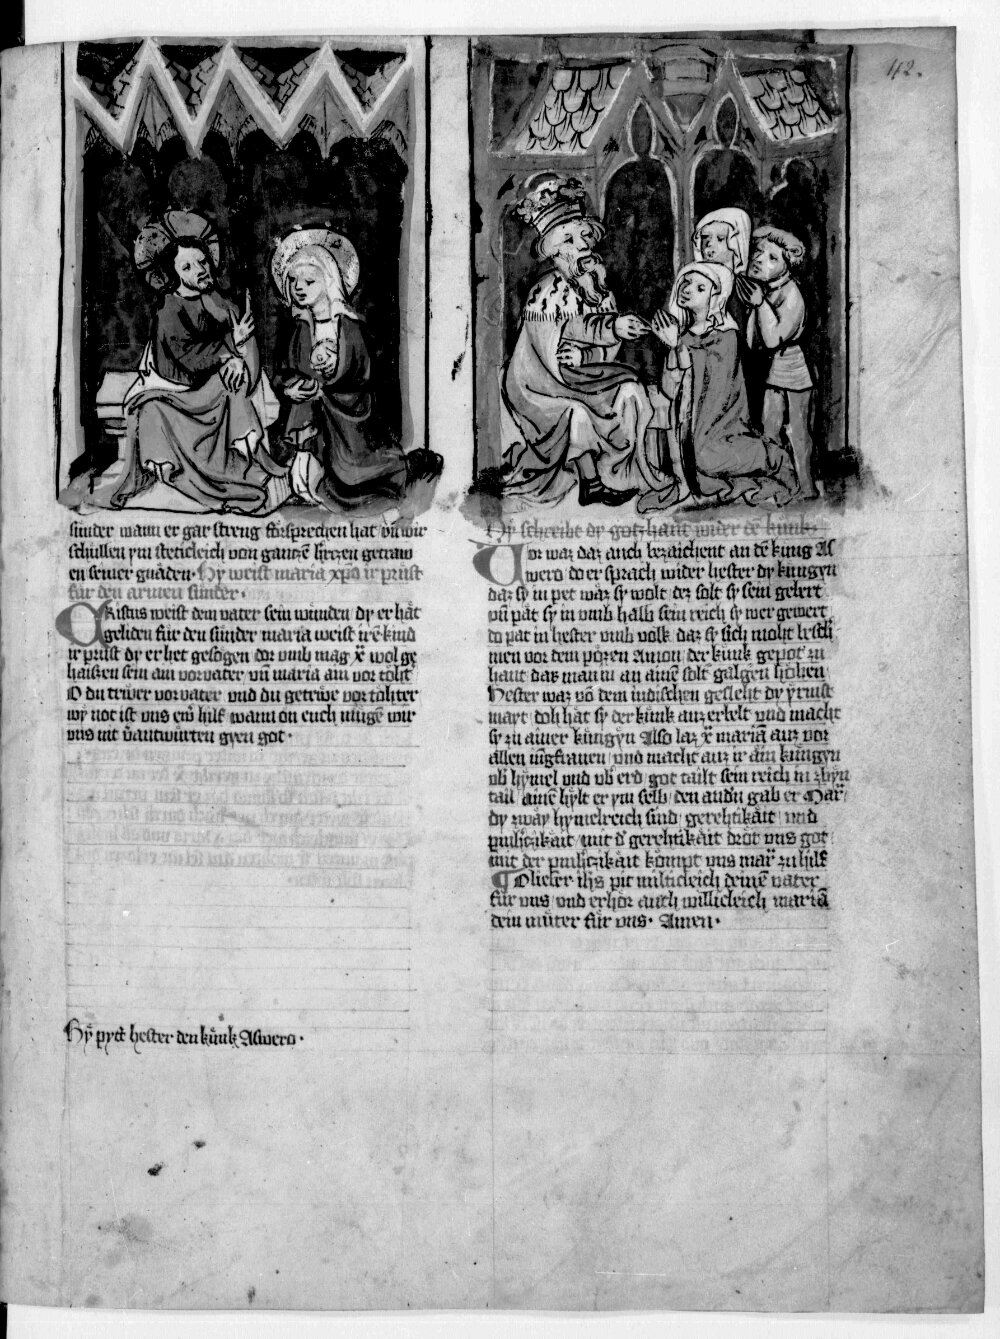 42.
sünder wann er gar streng forsprechen hat vn̄ wir
schüllen ym steticleich von ganczē herczen getraw
en seiner gnaden · Hy weist maria xp̄o ir prüst
für den armen sünder ·
Cristus weist dem vater sein wunden dy er hat
geliden für den sünder maria weist irē kind
ir prüst dy er het gesogen dor vmb mag xp̄c wol ge
haissen sein ain vorvater vn̄ maria ain vor tohter
O du trewer vorvater vnd du getrewe vor tohter
wy not ist vns ewr hilf wann on euch müge wir
vns nit v̄antwurten gegen got ·
Hy pytt hester den künk Aswero ·
Hy schreibt dy gotzhait wider de künk
Vor waz daz auch bezaichent an dē kung As
wero do er sprach wider hester dy kungyn
daz sy in pet waz sy wolt dez solt sy sein gelert
vn̄ pät sy in vmb halb sein reich sy wer gewert
do pat in hester vmb volk daz sy sich moht beschi
men vor dem pözen Amon der künk gepot zu
hant das man in an ainē solt galgen hohen
Hester waz vō dem iudischen gesleht dy ermst
mayt doh hat sy der künk auz erkelt vnd macht
sy zu ainer küngyn Also laz xp̄c mariā auz vor
allen iūgfrauen vnd macht auz ir ain küngyn
vb hymel vnd vb erd got tailt sein reich in zwyn
tail ainē hylt er ym selb den andn gab er Mar̄
dy zway hymelreich sind gerehtikait vnd
parmhczikait mit d' gerehtikait dröt vns got
mit der parmhczikait kompt vns mar̄ zu hilf
O lieber ih̄s pit milticleich deinē vater
für vns vnd erhor auch willicleich mariā
dein muter für vns · Amen ·